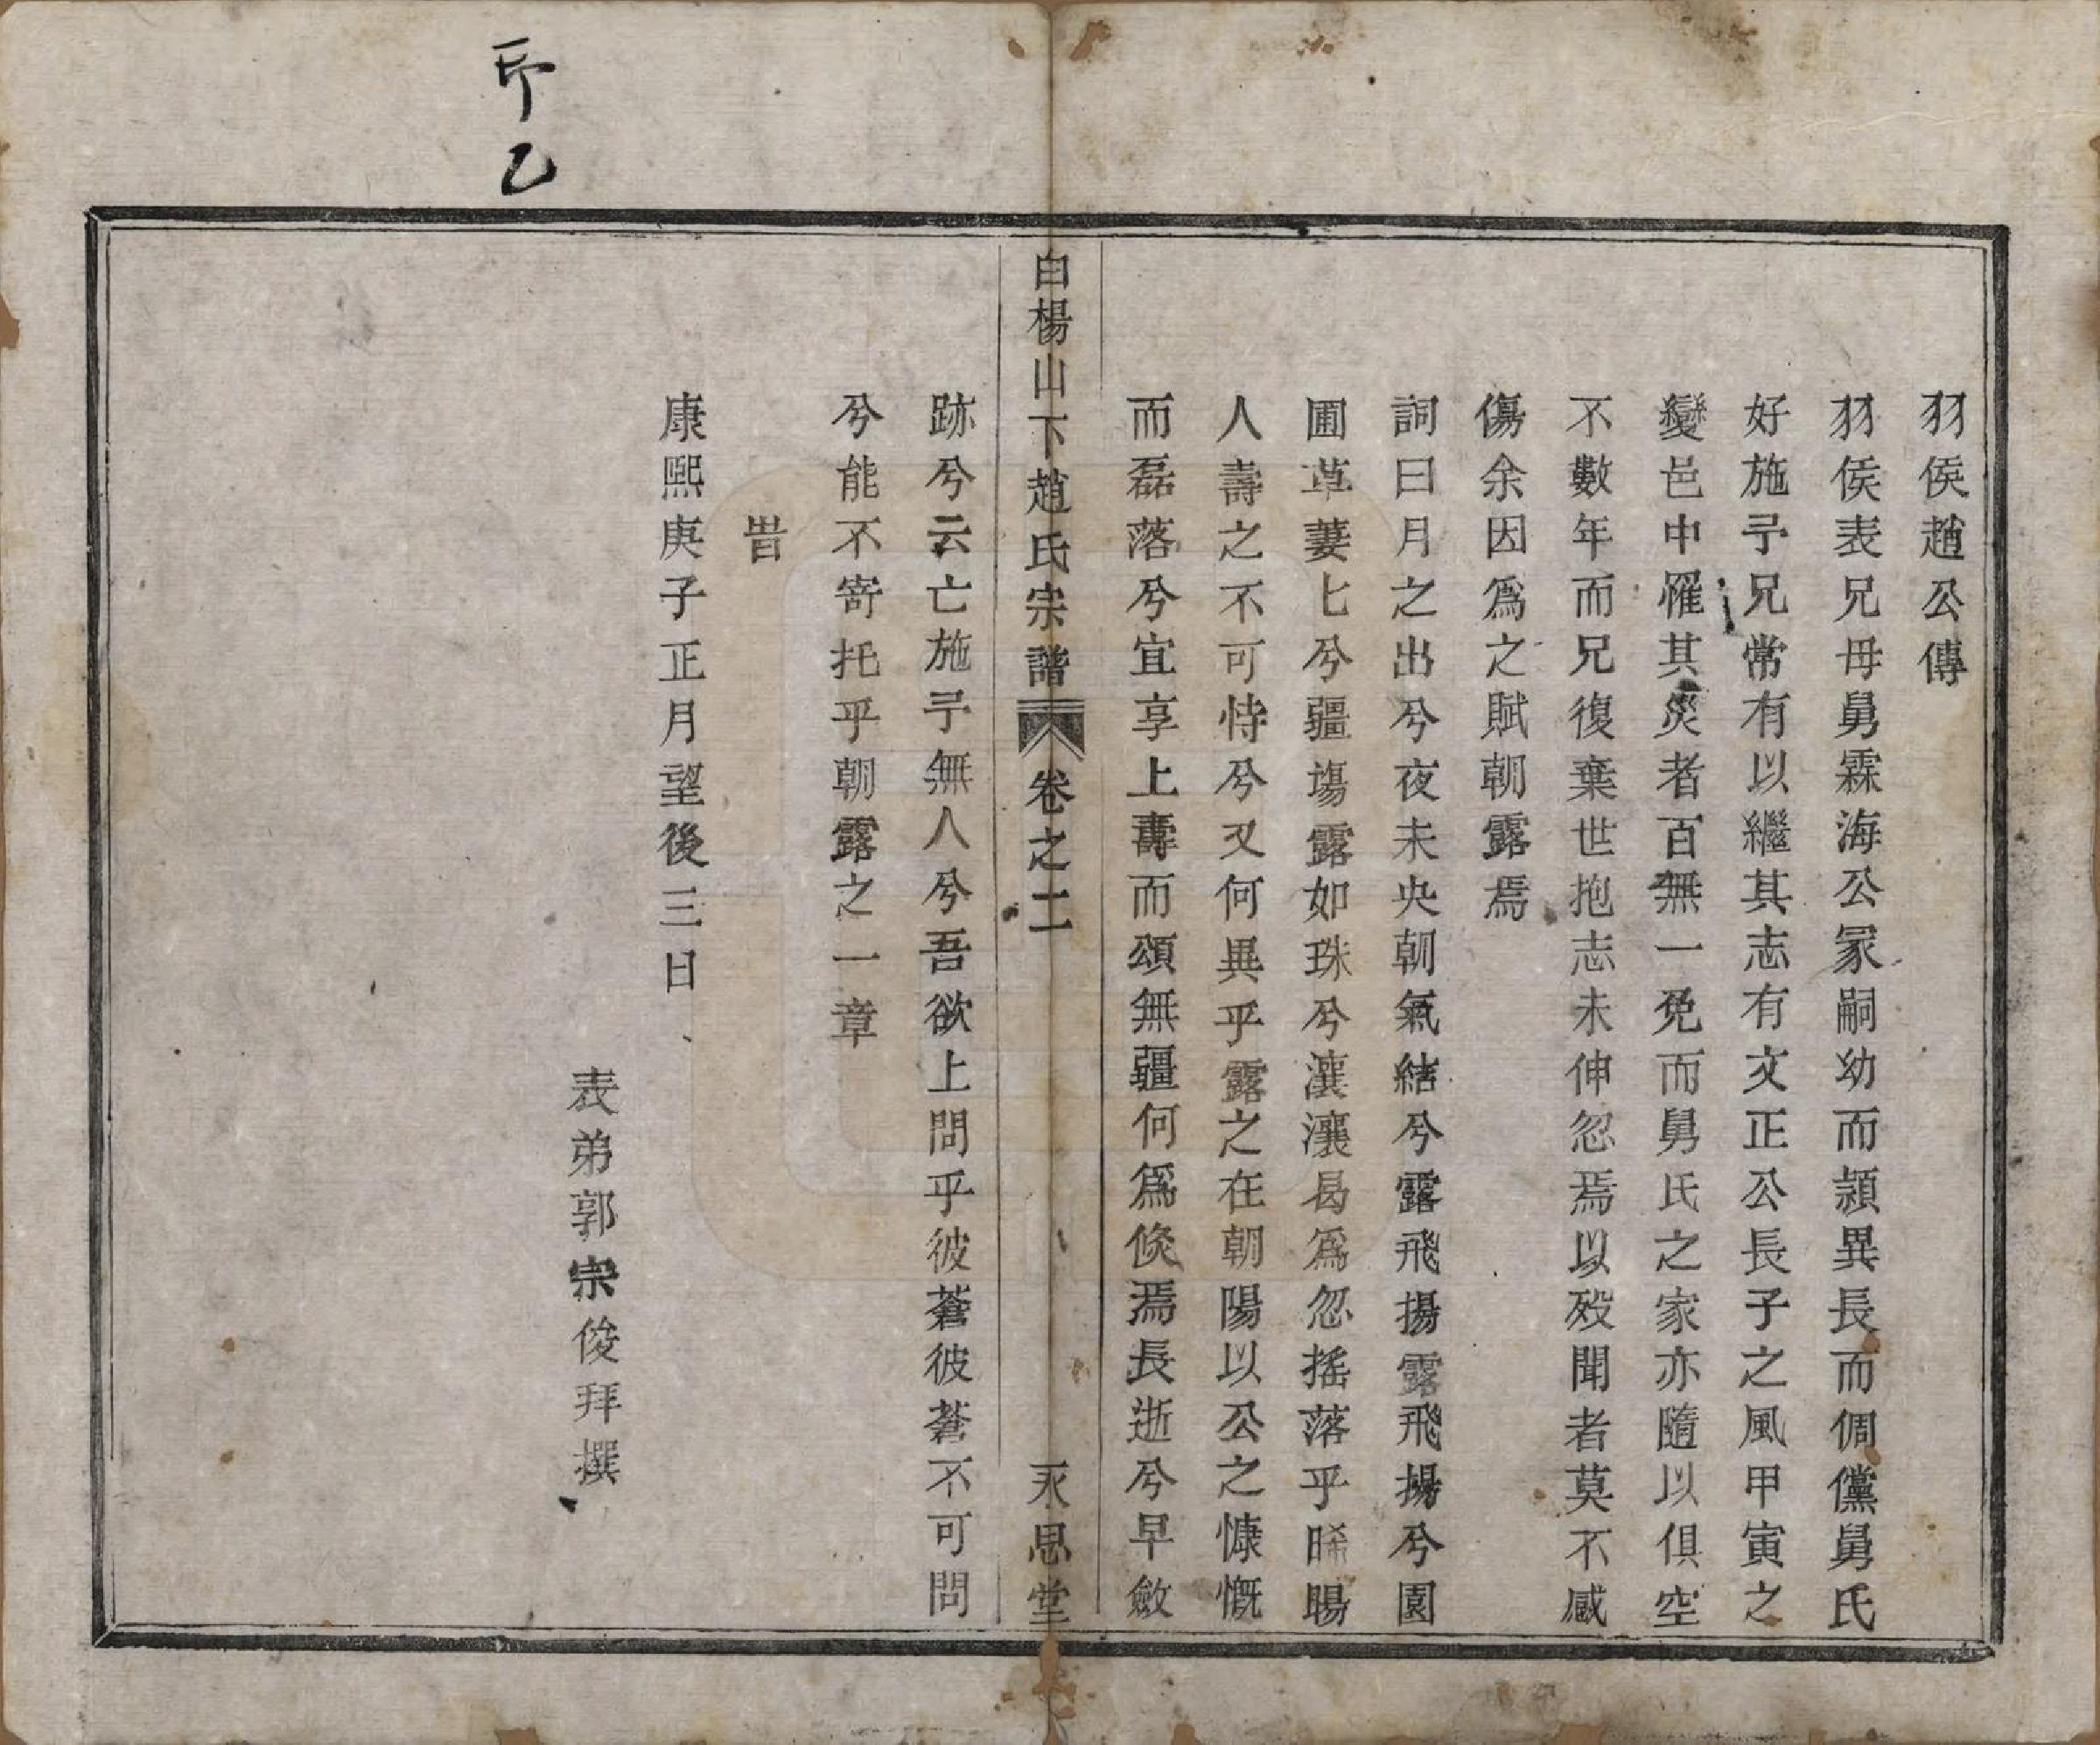 羽侯趙公傳
羽侯表兄毋舅霖海公冡嗣幼而頴異長而倜儻舅氏
好施予兄常有以繼其志有文正公長子之風甲寅之
變邑中罹其災者百無一免而舅氏之家亦隨以俱空
不數年而兄復棄世抱志未伸忽焉以歿聞者莫不感
傷余因爲之賦朝露焉
詞曰月之出兮夜未央朝氣結兮露飛揚露飛揚兮園
圃草萋匕兮疆塲露如珠兮瀼瀼曷爲忽摇落乎晞暘
人壽之不可恃兮又何異乎露之在朝陽以公之慷慨
而磊落兮宜享上壽而頌無疆何爲倐焉長逝兮早斂
白楊山下趙氏宗譜 卷之二 永思堂
跡兮云亡施予無人兮吾欲上問乎彼蒼彼蒼不可問
兮能不寄托乎朝露之一章
旹
康熙庚子正月望後三日
表弟郭宗俊拜撰
乙